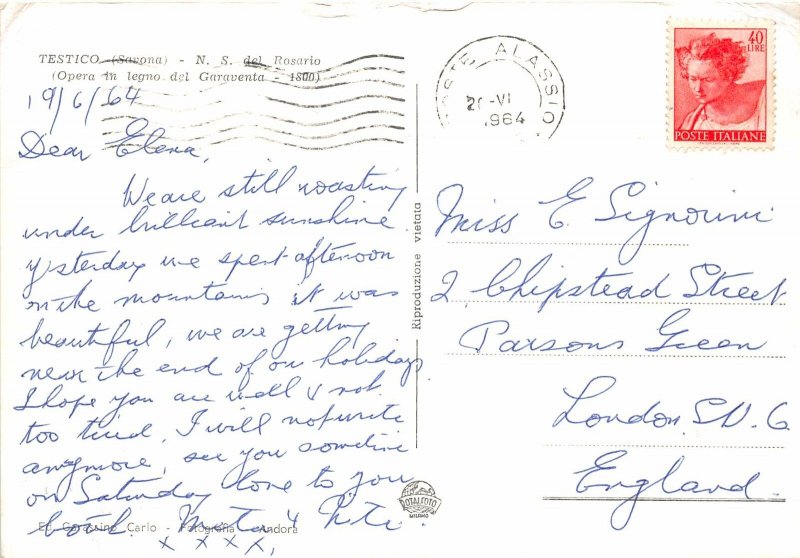 TESTICO (Savona) - N. S. del Rosario
(Opera in legno del Garaventa - 1800)
19/6/64
Dear Elena,
We are still roasting
under brilliant sunshine.
Yesterday we spent afternoon
on the mountains it was
beautiful, we are getting
near the end of our holidays
I hope you are well & not
too tired, I will not write
anymore, see you sometime
on Saturday love to you
both.
x x x x,
Ed. Garassino Carlo - Fotografia Andora
Riproduzione vietata
TOTALFOTO
MILANO
ALASSIO
VI
1964
40
LIRE
POSTE ITALIANE
Miss E. Signorini
2, Chipstead Street
Parsons Green
London. S.W.6
England.